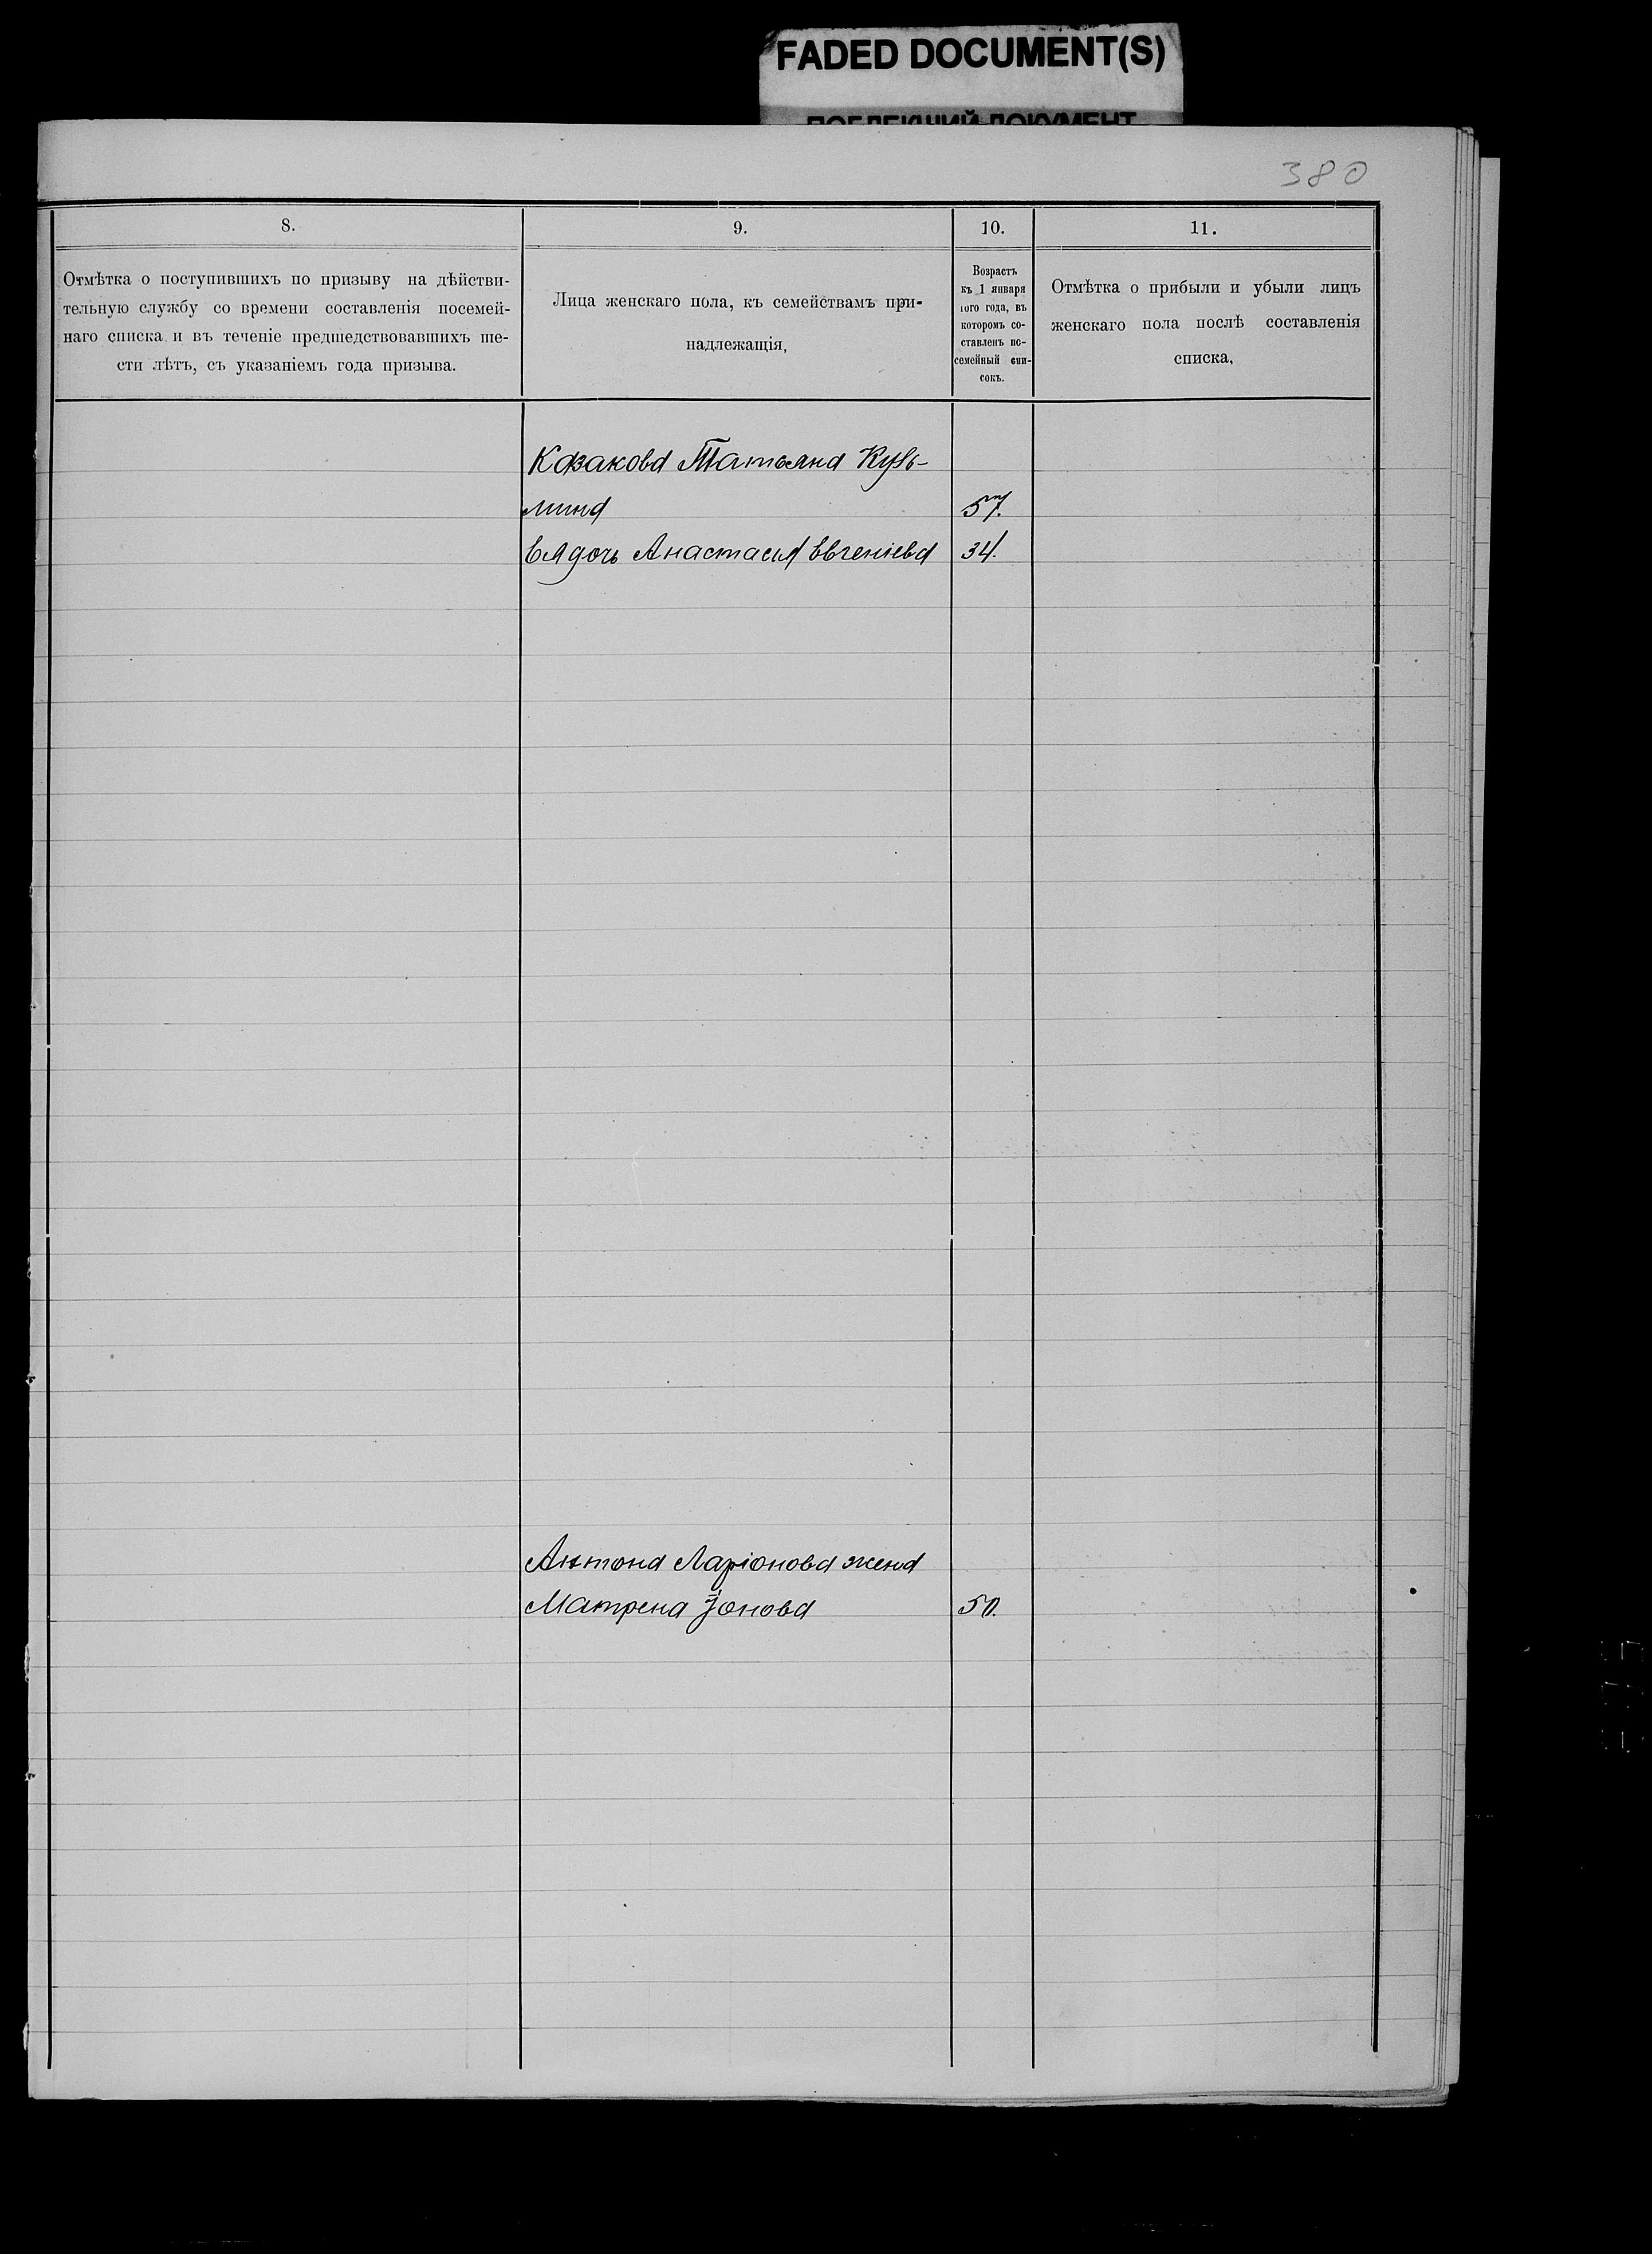 FADED DOCUMENT(S)
ПОБЛЕКШИЙ ДОКУМЕНТ
380
8.
9.
10.
11.
Отмѣтка о поступившихъ по призыву на дѣйстви-
тельную службу со времени составленія посемей-
наго списка и въ теченіе предшедствовавшихъ ше-
сти лѣтъ, съ указаніемъ года призыва.
Лица женскаго пола, къ семействамъ при-
надлежащія,
Возрастъ
къ 1 января
того года, въ
которомъ со-
ставленъ по-
семейный спи-
сокъ.
Отмѣтка о прибыли и убыли лицъ
женскаго пола послѣ составленія
списка,
Казакова Татьяна Кузь-
мина 57.
Ея дочь Анастасія Евгеніева 34.
Антона Ларіонова жена
Матрена Іонова 50.